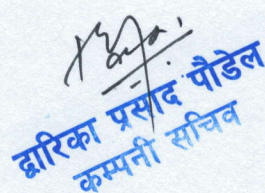 द्वारिका प्रसाद पौडेल
कम्पनी सचिव